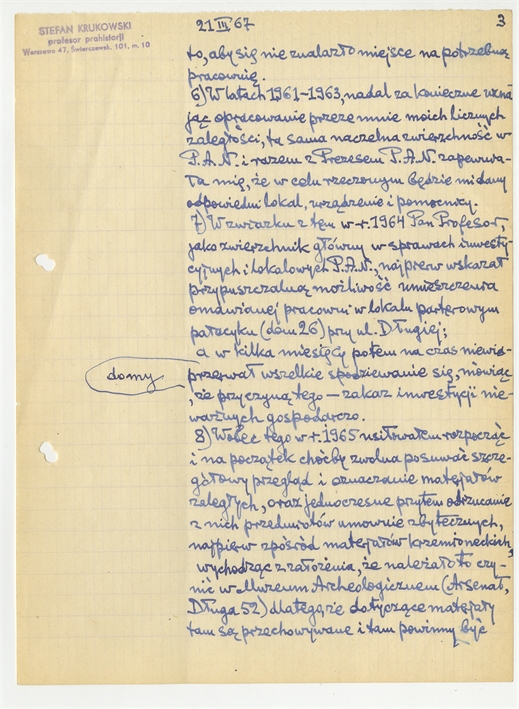 STEFAN KRUKOWSKI
profesor prahistorji
Warszawa 47, Świerczewsk. 101, m. 10
21 III 67
3
to, aby się nie znalazło miejsce na potrzebną
pracownię.
6) W latach 1961-1963, nadal za konieczne uzna
jąc opracowanie przeze mnie moich licznych
zaległości, ta sama naczelna zwierzchność w
P.A.N. i razem z Prezesem P.A.N. zapewnia-
ła mię, że w celu rzeczonym będzie mi dany
odpowiedni lokal, urządzenie i pomocnicy.
7) W związku z tem w r. 1964 Pan Profesor,
jako zwierzchnik główny w sprawach inwesty-
cyjnych i lokalowych P.A.N., najpierw wskazał
przypuszczalną możliwość umieszczenia
omawianej pracowni w lokalu parterowym
pałacyku (dom 26) przy ul. Długiej;
a w kilka miesięcy potem na czas niewid-
domy
przerwał wszelkie spodziewanie się, mówiąc
, że przyczyną tego — zakaz inwestycji nie-
ważnych gospodarczo.
8) Wobec tego w r. 1965 usiłowałem rozpocząć
i na początek choćby zwolna posuwać szcze-
gółowy przegląd i oznaczanie materjałów
zaległych, oraz jednoczesne przytem odrzucanie
z nich przedmiotów umownie zbytecznych,
najpierw zpośród materjałów krzemionecki̶ch,
wychodząc z założenia, że należało to czy-
nić w Muzeum Archeologicznem (Arsenał,
Długa 52) dlatego, że dotyczące materjały
tam są przechowywane i tam powinny być